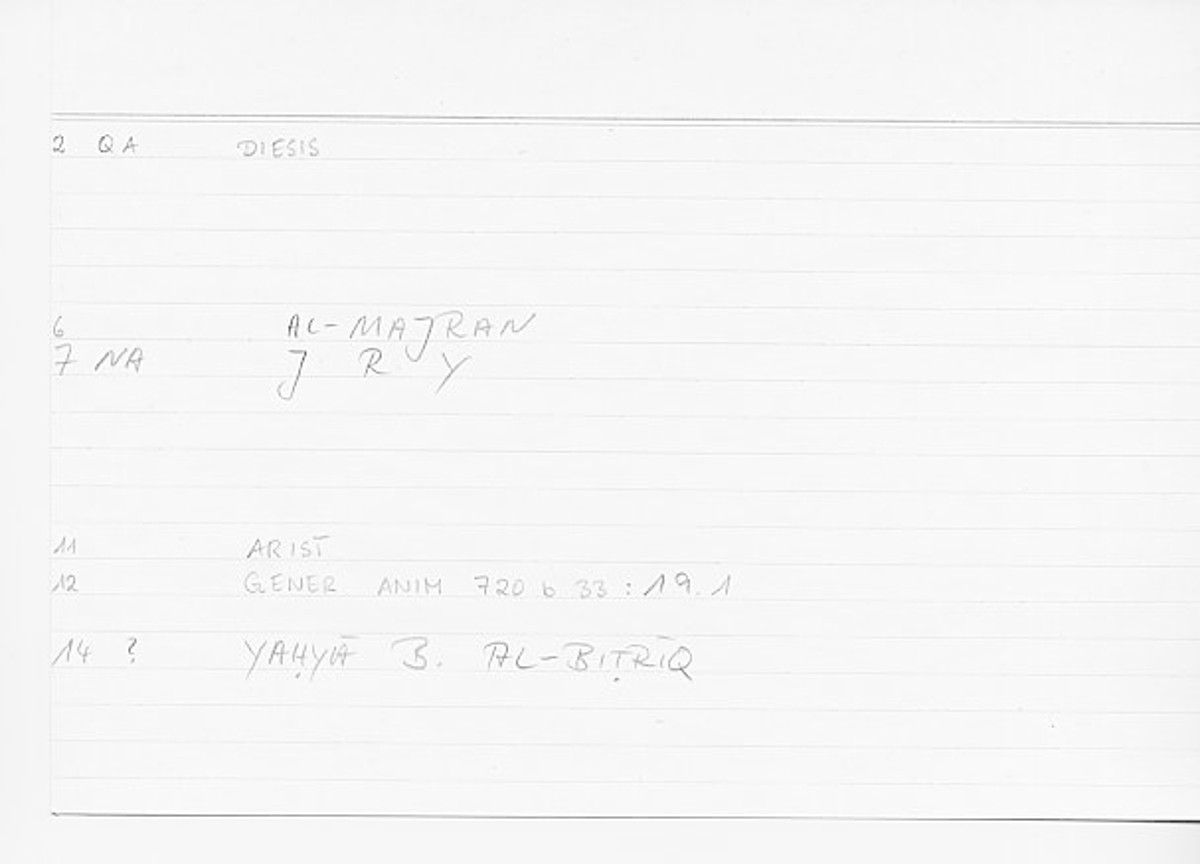 2 QA DIESIS
6 AL-MAJRAN
7 NA J R Y
11 ARIST
12 GENER ANIM 720 b 33 : 19.1
14 ? YAḤYĀ B. AL-BIṬRĪQ